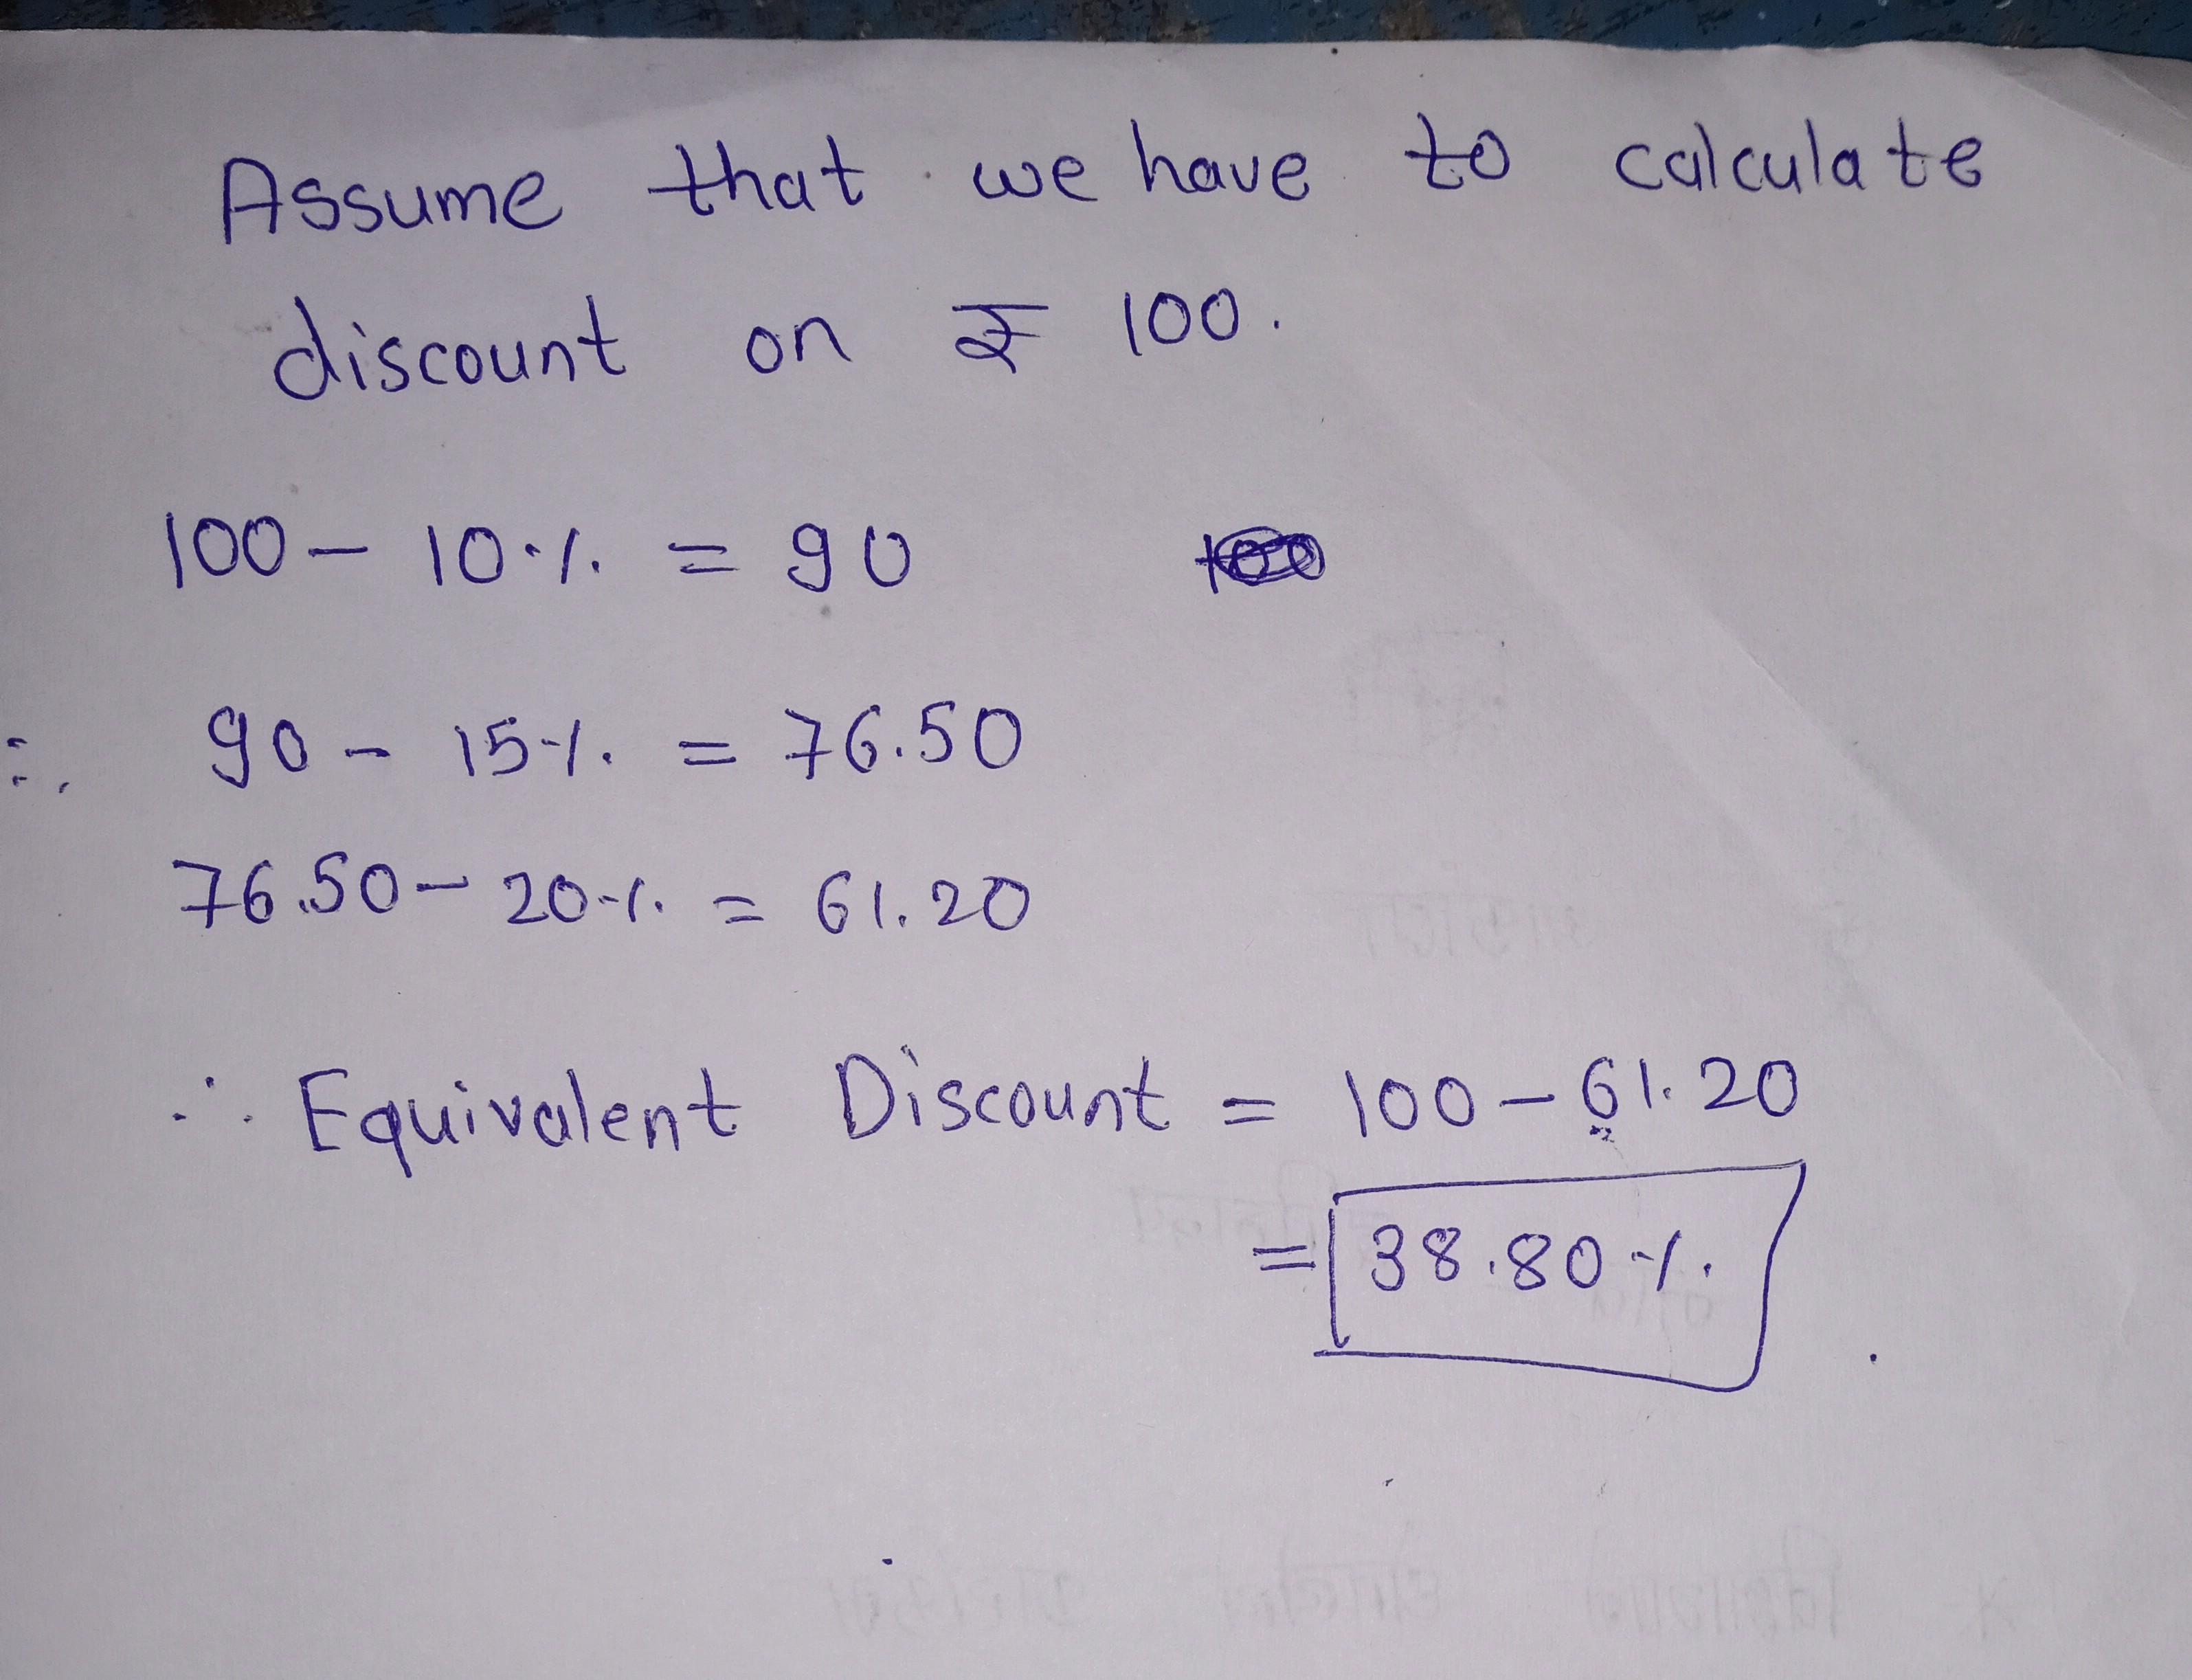 Assume that we have to calculate
discount on ₹ 100.
100 - 10% = 90
∴ 90 - 15% = 76.50
76.50 - 20% = 61.20
∴ Equivalent Discount = 100 - 61.20
= 38.80%